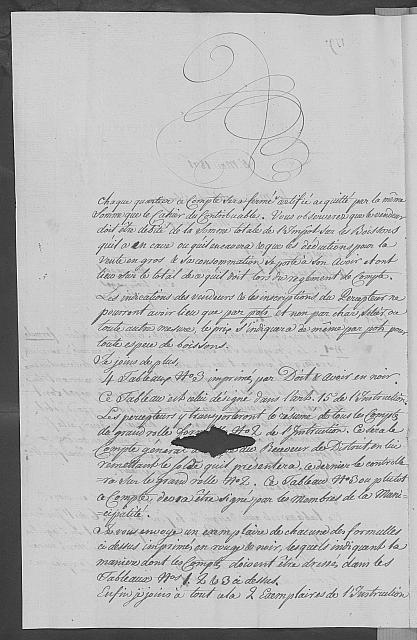 Chaque quartier ce Compte sera fermé certifié acquitté par la même
Somme que le Cahier du Contribuable. Vous observerez que le vendeur
doit être débité de la Somme totale de l'Impôt sur les Boissons
qu'il a en cave ou qu'il encavera & que les déductions pour la
Vente en gros & Sa consommation Se porte à Son Avoir et ont
lieu sur le total de ce qu'il doit lors du règlement de Compte.
Les indications des vendeurs & les inscriptions du Percepteur ne
pourront avoir lieu que par pots, et non par chars, Setier, ou
toute autre mesure, le prix S'indiquera de même par pots, pour
toute espece de boissons.
Je joins de plus,
4 Tableaux N.o 3 imprimé par Doit & Avoir en noir.
Ce Tableau est celui désigné dans l'art. 15 de l'Instruction.
Les percepteurs y transporteront le résumé de tous les Comptes
du grand rolle N.o 2. de l'Instruction. Ce sera le
Compte general Receveur de District en lui
remettant le Solde qu'il presentera, ce dernier le controlle-
=ra Sur le grand rolle N.o 2. Ce Tableau N.o 3 ou plutot
ce Compte, devra être Signé par les Membres de la Muni-
cipalité.
Je vous envoye un exemplaire de chacune des formulles
ci dessus imprimés en rouge & noir, lesquels indiquent la
manière dont les Comptes doivent être dressés dans les
Tableaux N.os 1. 2 & 3 ci dessus.
Enfin j'y joins à tout cela 2 Exemplaires de l'Instruction